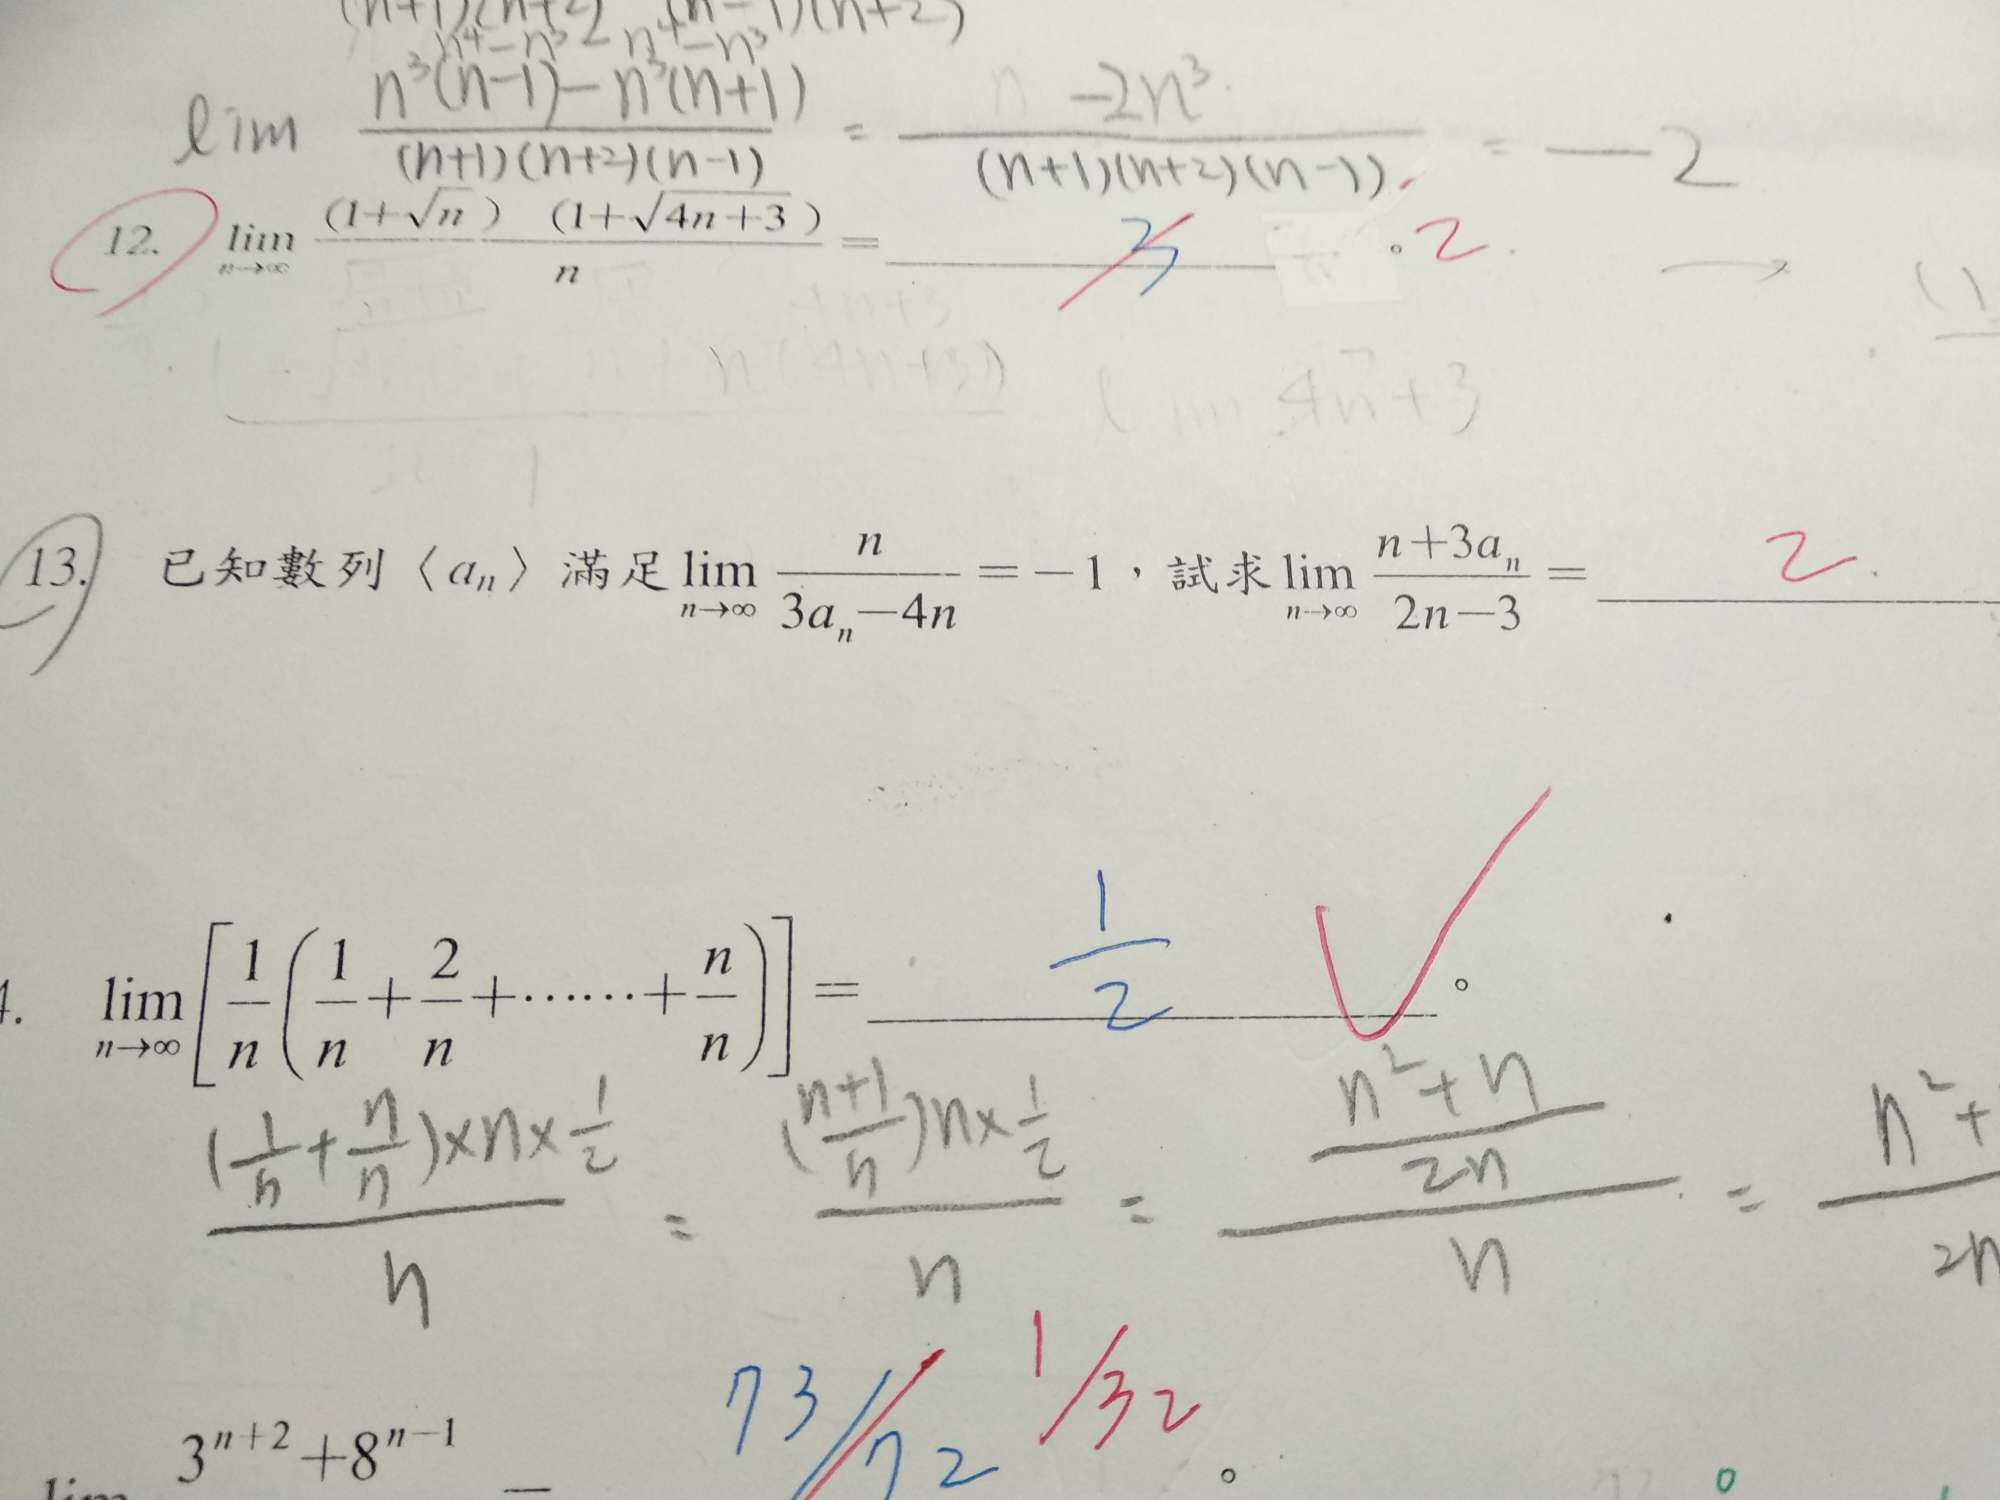 (n+1)(n+2) (n-1)(n+2)
n⁴-n³- n⁴-n³
lim n³(n-1)-n³(n+1) / (n+1)(n+2)(n-1) = -2n³ / (n+1)(n+2)(n-1) = -2
12. lim n→∞ (1+√n) (1+√4n+3) / n = 3 。2.
n(4n+3) lim 4n+3
13. 已知數列〈aₙ〉滿足 lim n→∞ n / 3aₙ-4n = -1，試求 lim n→∞ n+3aₙ / 2n-3 = 2.
4. lim n→∞ [1/n (1/n + 2/n + …… + n/n)] = 1/2 。
(1/n + n/n)×n×1/2 / n = (n+1/n)n×1/2 / n = n²+n / 2n / n = n²+ / 2n
73/72 1/32 。
lim 3ⁿ⁺²+8ⁿ⁻¹ =